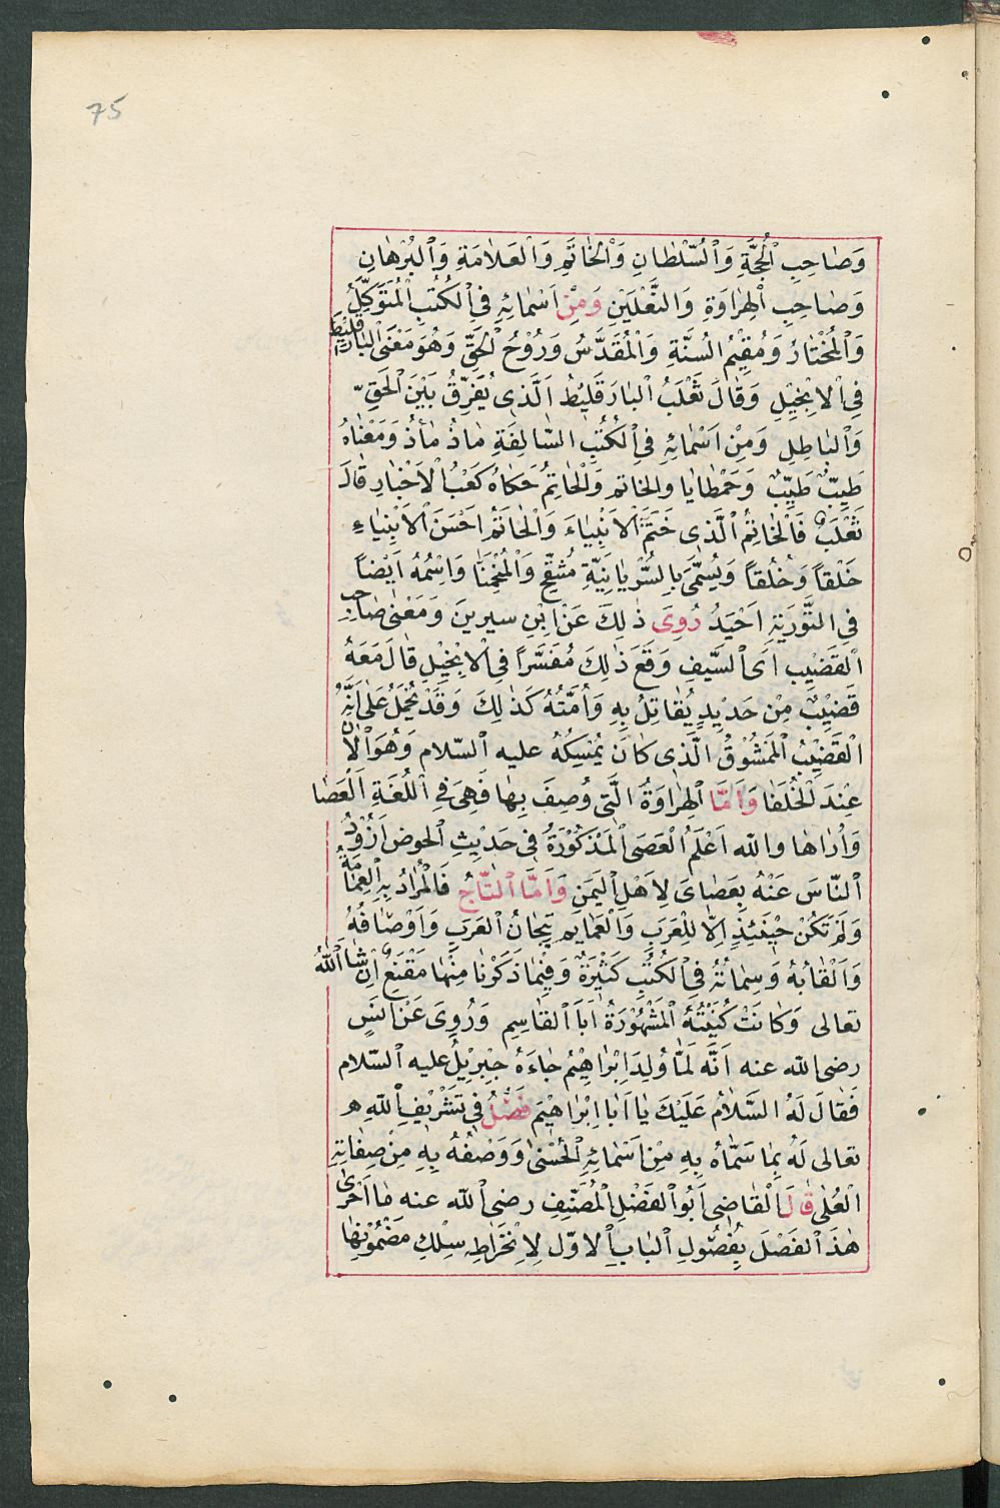 75
وَصَاحِبِ الْحُجَّةِ وَالسُّلْطَانِ وَالْخَاتَمِ وَالْعَلَامَةِ وَالْبُرْهَانِ
وَصَاحِبِ الْهِرَاوَةِ وَالنَّعْلَيْنِ وَمِنْ اَسْمَائِهِ فِي الْكُتُبِ الْمُتَوَكِّلُ
وَالْمُخْتَارُ وَمُقِيمُ السُّنَّةِ وَالْمُقَدَّسُ وَرُوْحُ الْحَقِّ وَهُوَ مَعْنَى الْبَارَقَلِيْطِ
فِي الْاِنْجِيْلِ وَقَالَ ثَعْلَبُ الْبَارَقَلِيْطُ الَّذِى يُفَرِّقُ بَيْنَ الْحَقِّ
وَالْبَاطِلِ وَمِنْ اَسْمَائِهِ فِي الْكُتُبِ السَّالِفَةِ مَاذْ مَاذْ وَمَعْنَاهُ
طَيِّبٌ طَيِّبٌ وَحَمْطَايَا وَالْخَاتَمُ وَالْحَاتِمُ حَكَاهُ كَعْبُ الْاَحْبَارِ قَالَ
ثَعْلَبٌ فَالْخَاتِمُ الَّذِى خَتَمَ الْاَنْبِيَاءَ وَالْحَاتَمُ اَحْسَنُ الْاَنْبِيَاءِ
خَلْقاً وَخُلُقاً وَيُسَمَّى بِالسُّرْيَانِيَّةِ مُشَفَّحْ وَالْمُنْحَمِنَّا وَاسْمُهُ اَيْضاً
فِي التَّوْرَيةِ اُحَيْدُ رُوِىَ ذٰلِكَ عَنْ ابْنِ سِيرِينَ وَمَعْنٰى صَاحِبِ
الْقَضِيْبِ اَىِ السَّيْفِ وَقَعَ ذٰلِكَ مُفَسَّراً فِي الْاِنْجِيْلِ قَالَ مَعَهُ
قَضِيْبٌ مِنْ حَدِيْدٍ يُقَاتِلُ بِهِ وَاُمَّتُهُ كَذٰلِكَ وَقَدْ يُحْمَلُ عَلَى اَنَّهُ
الْقَضِيْبُ الْمَمْشُوْقُ الَّذِى كَانَ يُمْسِكُهُ عليه السّلام وَهُوَ الْاٰنَ
عِنْدَ الْخُلَفَا وَاَمَّا الْهِرَاوَةُ الَّتِى وُصِفَ بِهَا فَهِىَ فِي اللُّغَةِ الْعَصَا
وَاُرَاهَا والله اَعْلَمُ الْعَصَى الْمَذْكُوْرَةُ فِى حَدِيْثِ الْحَوضِ اَزُوْدُ
النَّاسَ عَنْهُ بِعَصَاىَ لِاَهْلِ الْيَمَنِ وَاَمَّا التَّاجُ فَالْمُرَادُ بِهِ الْعِمَامَةُ
وَلَمْ تَكُنْ حِيْنَئِذٍ اِلَّا لِلْعَرَبِ وَالْعَمَايِمُ تِيْجَانُ الْعَرَبِ وَاَوْصَافُهُ
وَاَلْقَابُهُ وَسِمَاتُهُ فِي الْكُتُبِ كَثِيْرَةٌ وَفِيْمَا ذَكَرْنَا مِنْهَا مَقْنَعٌ اِنْ شَا اللّٰهُ
تعالى وَكَانَتْ كُنْيَتُهُ الْمَشْهُوْرَةُ اَبَا الْقَاسِمِ وَرُوِىَ عَنْ اَنَسٍ
رضى الله عنه اَنَّه لَمَّا وُلِدَ اِبْرَاهِيْمُ جَاءَهُ جِبْرِيْلُ عليه السّلام
فَقَالَ لَهُ السَّلَامُ عَلَيْكَ يَا اَبَا اِبْرَاهِيْمَ فَصْلُ فِى تَشْرِيْفِ اللّٰهِ
تعالى لَهُ بِمَا سَمَّاهُ بِهِ مِنْ اَسْمَائِهِ الْحُسْنٰى وَوَصَفَهُ بِهِ مِنْ صِفَاتِهِ
الْعُلٰى قَالَ الْقَاضِى اَبُو الْفَضْلِ الْمُصَنِّفِ رضى الله عنه مَا اَحْرٰى
هٰذَا الْفَصْلَ بِفُصُوْلِ الْبَابِ الْاوّل لِاِنْخِرَاطِهِ سِلْكِ مَضْمُوْنِهَا